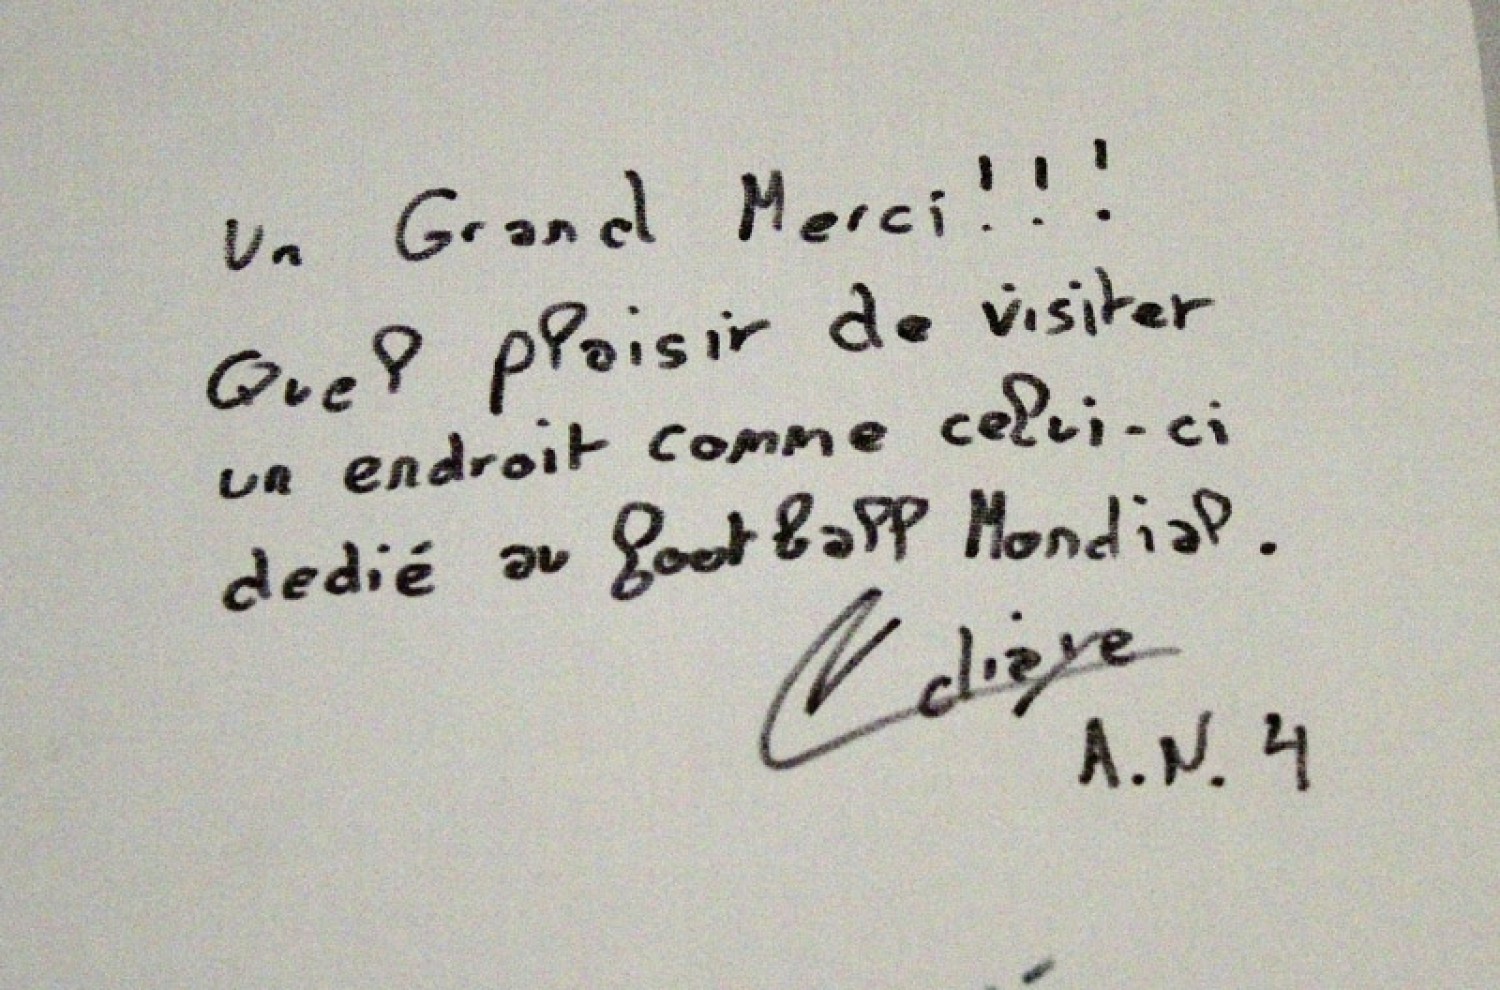 Un Grand Merci!!!
Quel plaisir de visiter
un endroit comme celui-ci
dedié au football Mondial.
A.N. 4